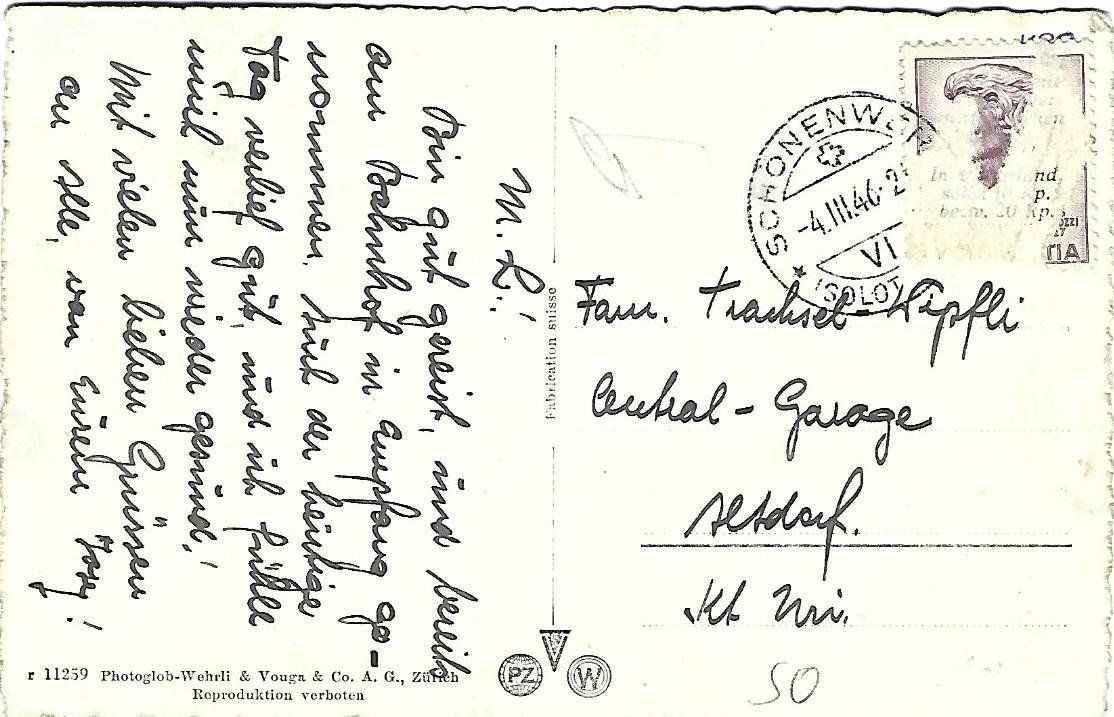 M. L.!
Bin gut gereist, und bereits
am Bahnhof in Empfang ge-
nommen. Auch der heutige
Tag verlief gut, und ich fühle
mich nun wieder gesund!
Mit vielen lieben Grüssen
an Alle, von Eurem Josef!
Fabrication suisse
SCHÖNENWE
-4.III.46-2
VI
(SOLOT
In land,
Rp.
bezw. 20 Rp.
OZZI
TIA
Fam. Trachsel-Zipfli
Central-Garage
Altdorf.
Kt Uri.
50
r 11259 Photoglob-Wehrli & Vouga & Co. A. G., Zürich
Reproduktion verboten
PZ
V
W